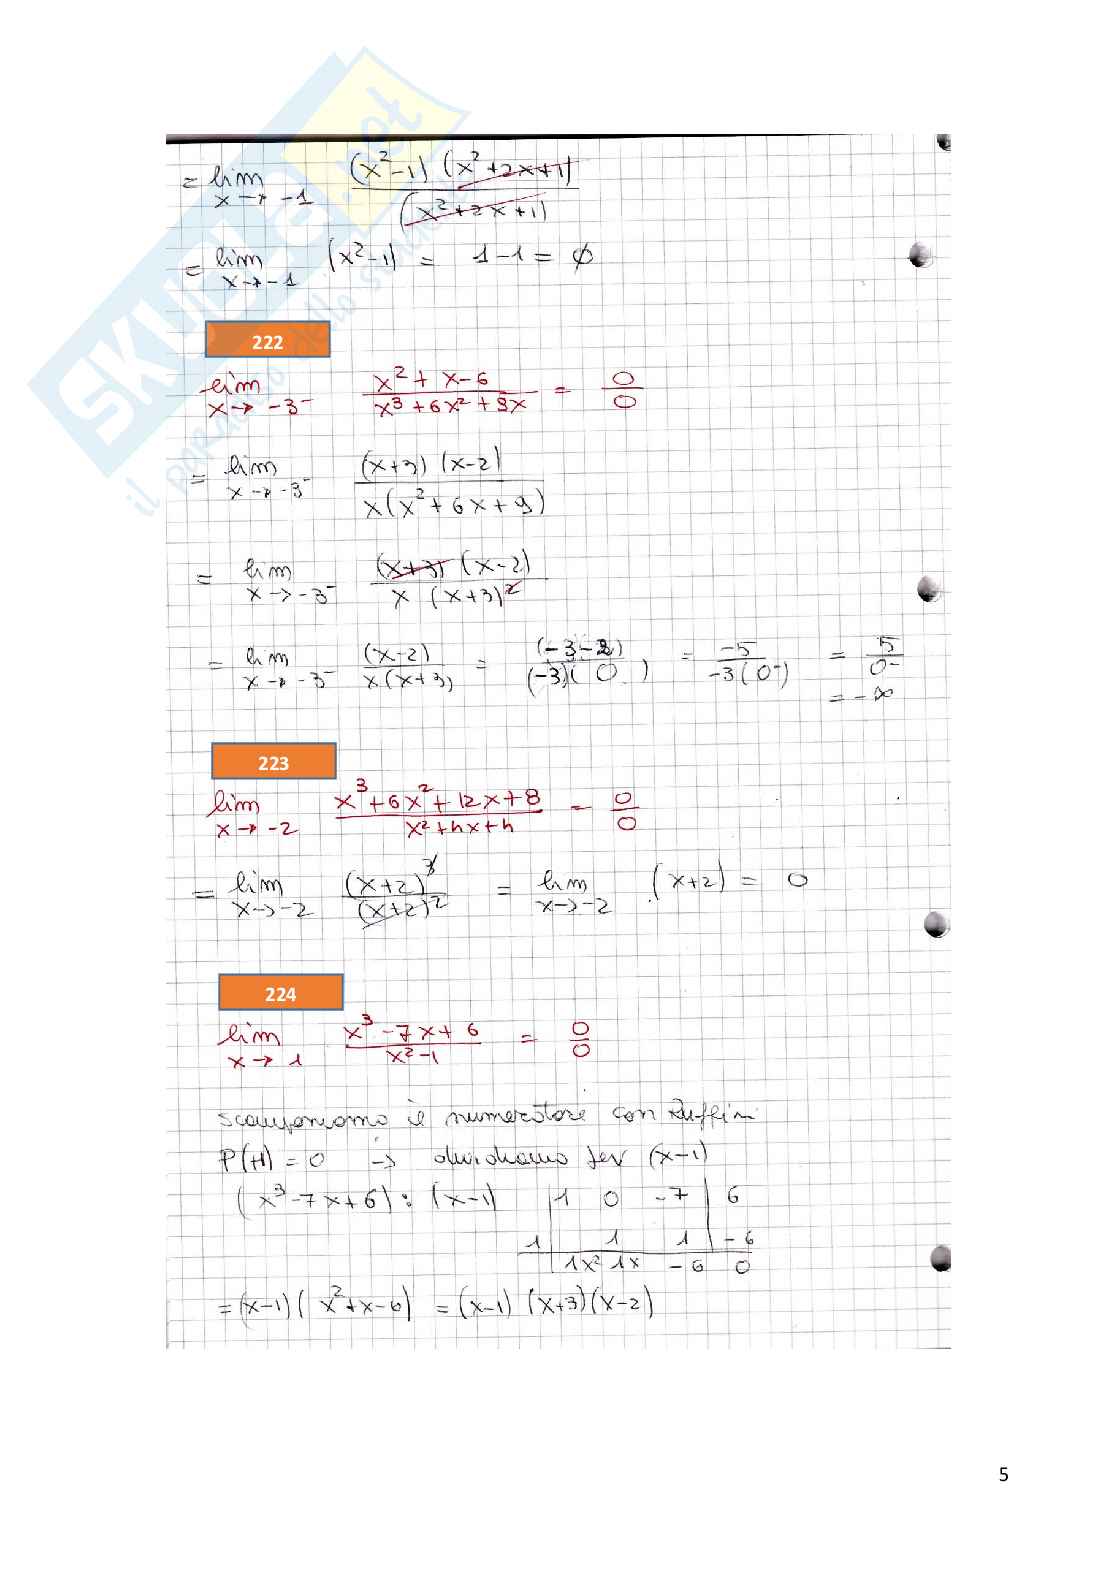 = lim x→-1 (x²-1)(x²+2x+1) / (x²+2x+1)
= lim x→-1 (x²-1) = 1-1 = ∅
222
lim x→-3⁻ x²+x-6 / x³+6x²+9x = 0/0
= lim x→-3⁻ (x+3)(x-2) / x(x²+6x+9)
= lim x→-3⁻ (x+3)(x-2) / x(x+3)²
= lim x→-3⁻ (x-2) / x(x+3) = (-3-2) / (-3)(0) = -5 / -3(0⁻) = 5/0⁻
= -∞
223
lim x→-2 x³+6x²+12x+8 / x²+4x+4 = 0/0
= lim x→-2 (x+2)³ / (x+2)² = lim x→-2 (x+2) = 0
224
lim x→1 x³-7x+6 / x²-1 = 0/0
scomponiamo il numeratore con Ruffini
P(+1) = 0 → dividiamo per (x-1)
(x³-7x+6) : (x-1) | 1 0 -7 | 6
1 | 1 1 | -6
1x² 1x -6 0
= (x-1)(x²+x-6) = (x-1)(x+3)(x-2)
5
SKUOLA.net
il paradiso dello studente